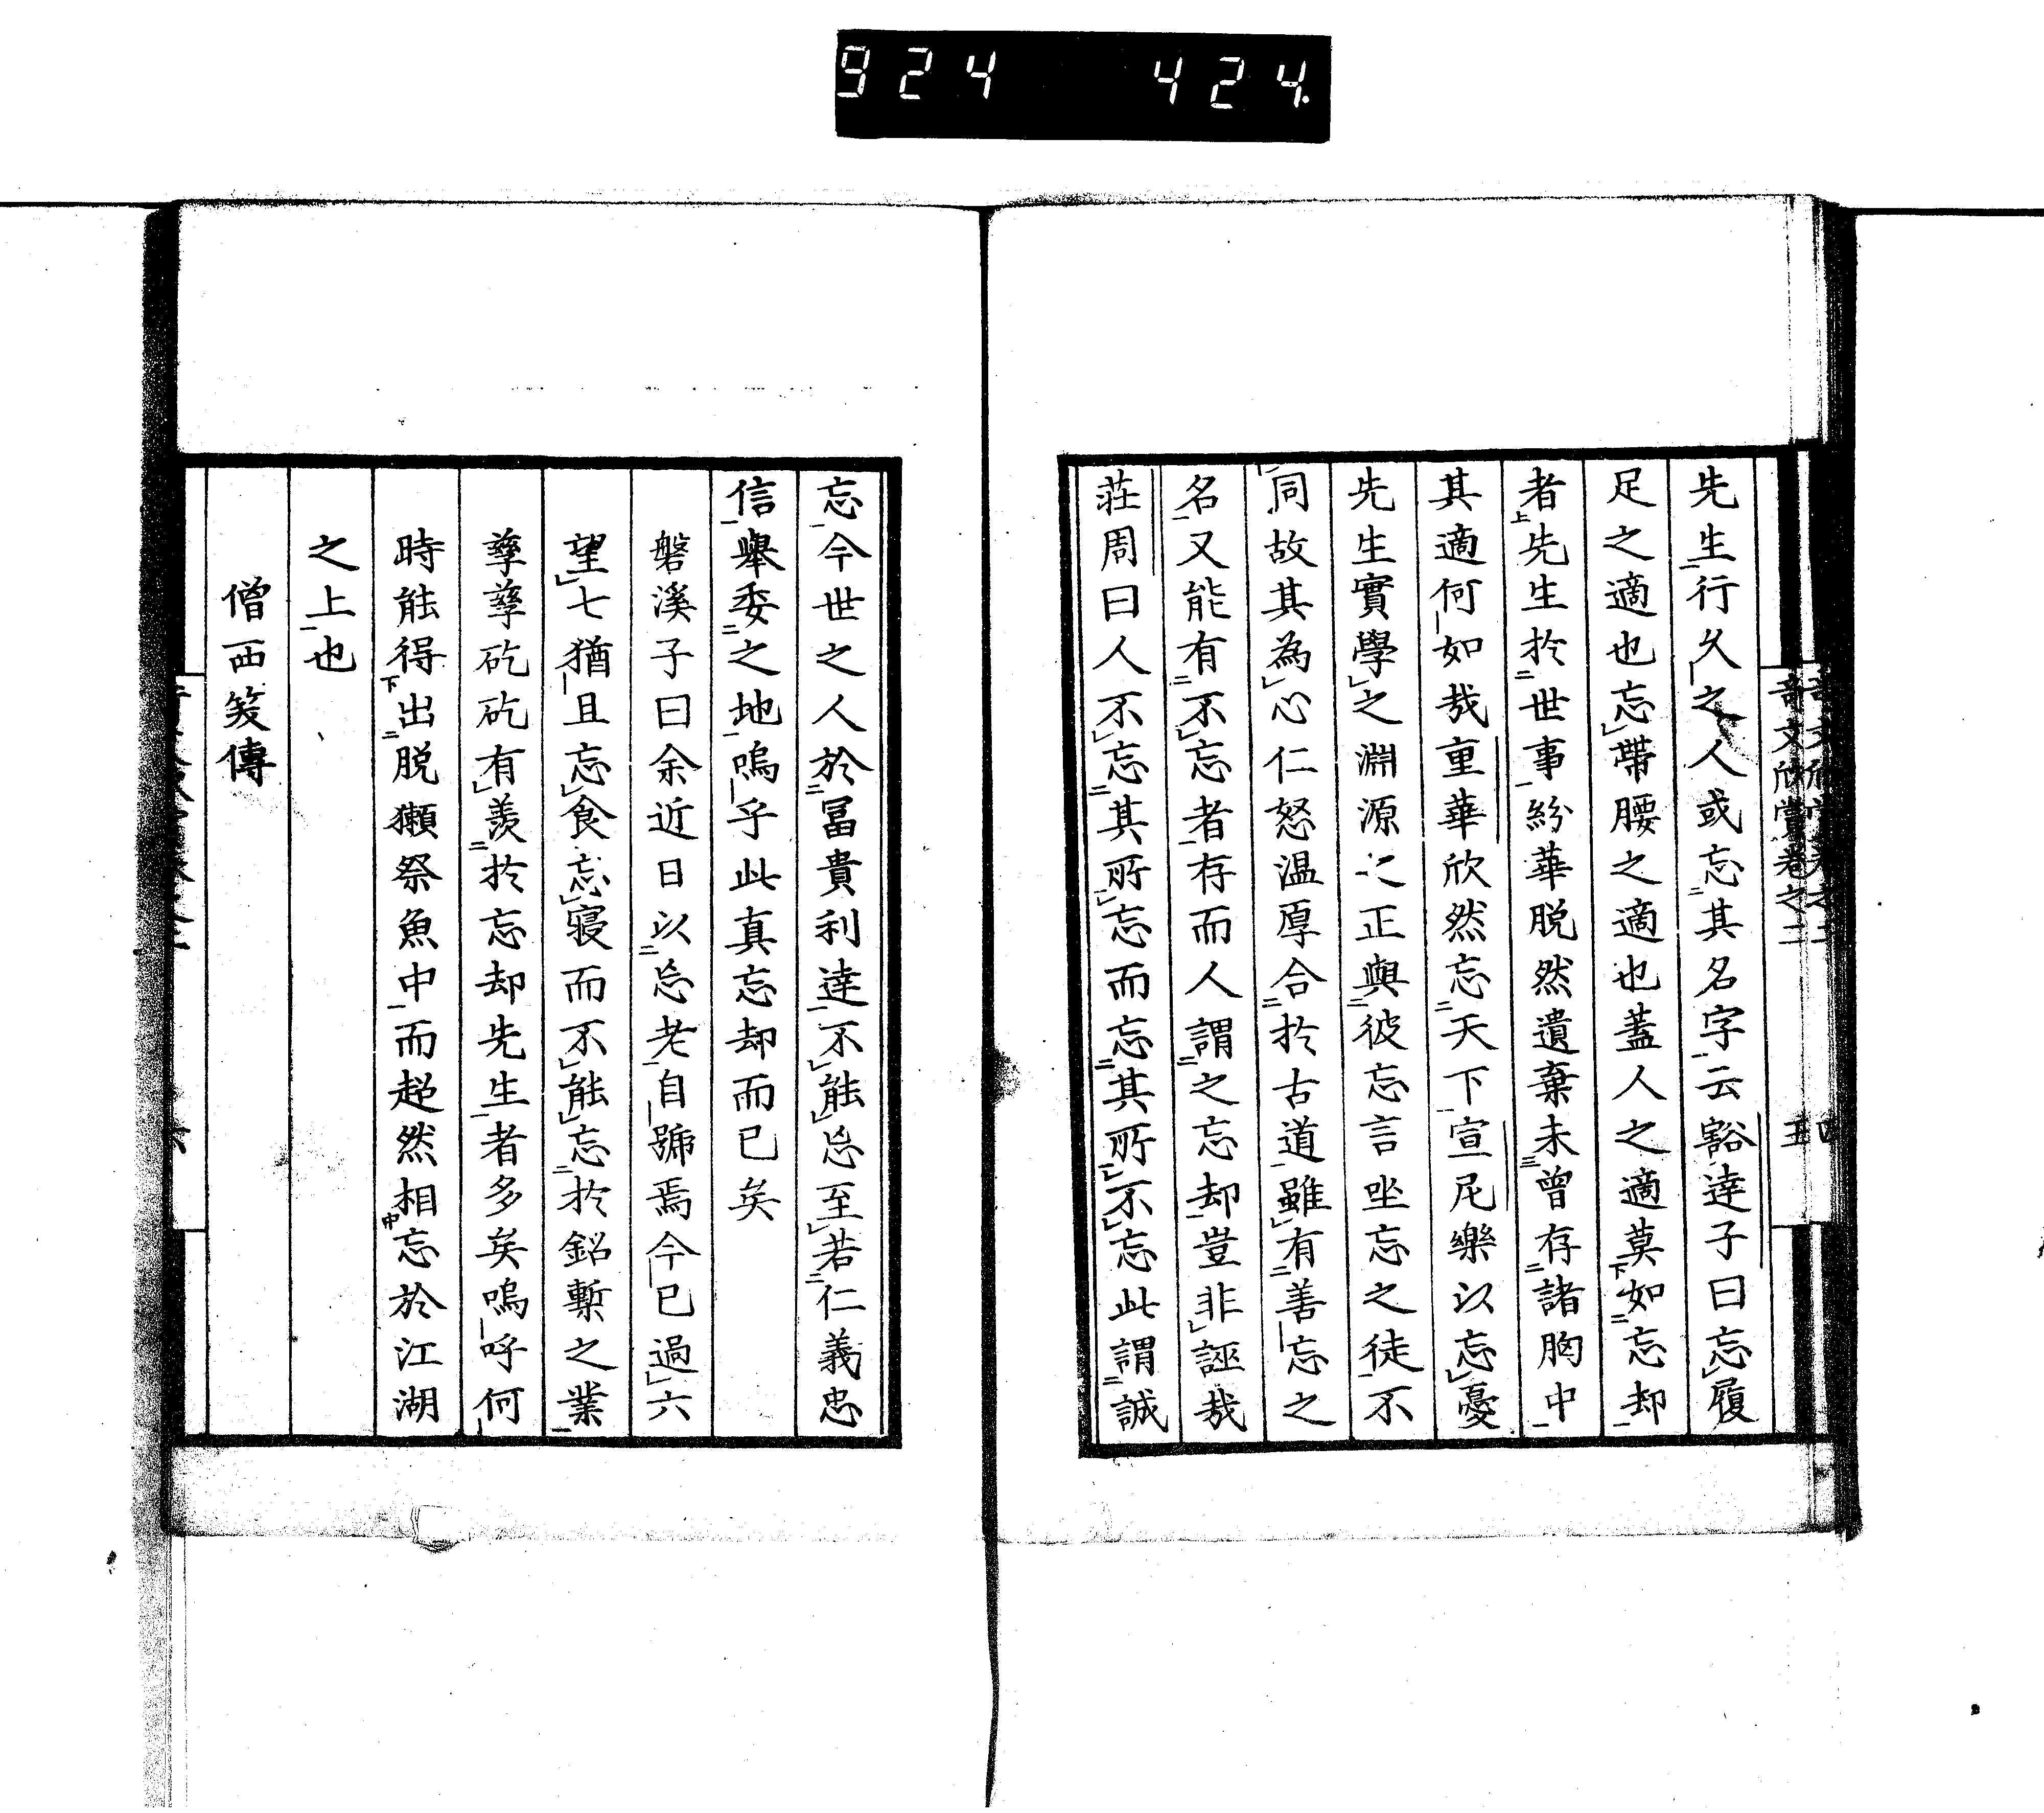 924 424
奇文欣賞卷之二 五
先生行久之人或忘其名字云豁達子曰忘履
足之適也忘帶腰之適也蓋人之適莫如忘却
者先生於世事紛華脱然遺棄未曾存諸胸中
其適何如哉重華欣然忘天下宣尼樂以忘憂
先生實學之淵源之正與彼忘言坐忘之徒不
同故其為心仁恕温厚合於古道雖有善忘之
名又能有不忘者存而人謂之忘却豈非誣哉
莊周曰人不忘其所忘而忘其所不忘此謂誠
忘今世之人於冨貴利達不能忘至若仁義忠
信舉委之地嗚乎此真忘却而已矣
磐溪子曰余近日以忘老自號焉今已過六
望七猶且忘食忘寝而不能忘於鉛槧之業
孳孳矻矻有羨於忘却先生者多矣嗚呼何
時能得出脱獺祭魚中而超然相忘於江湖
之上也
僧西笑傳